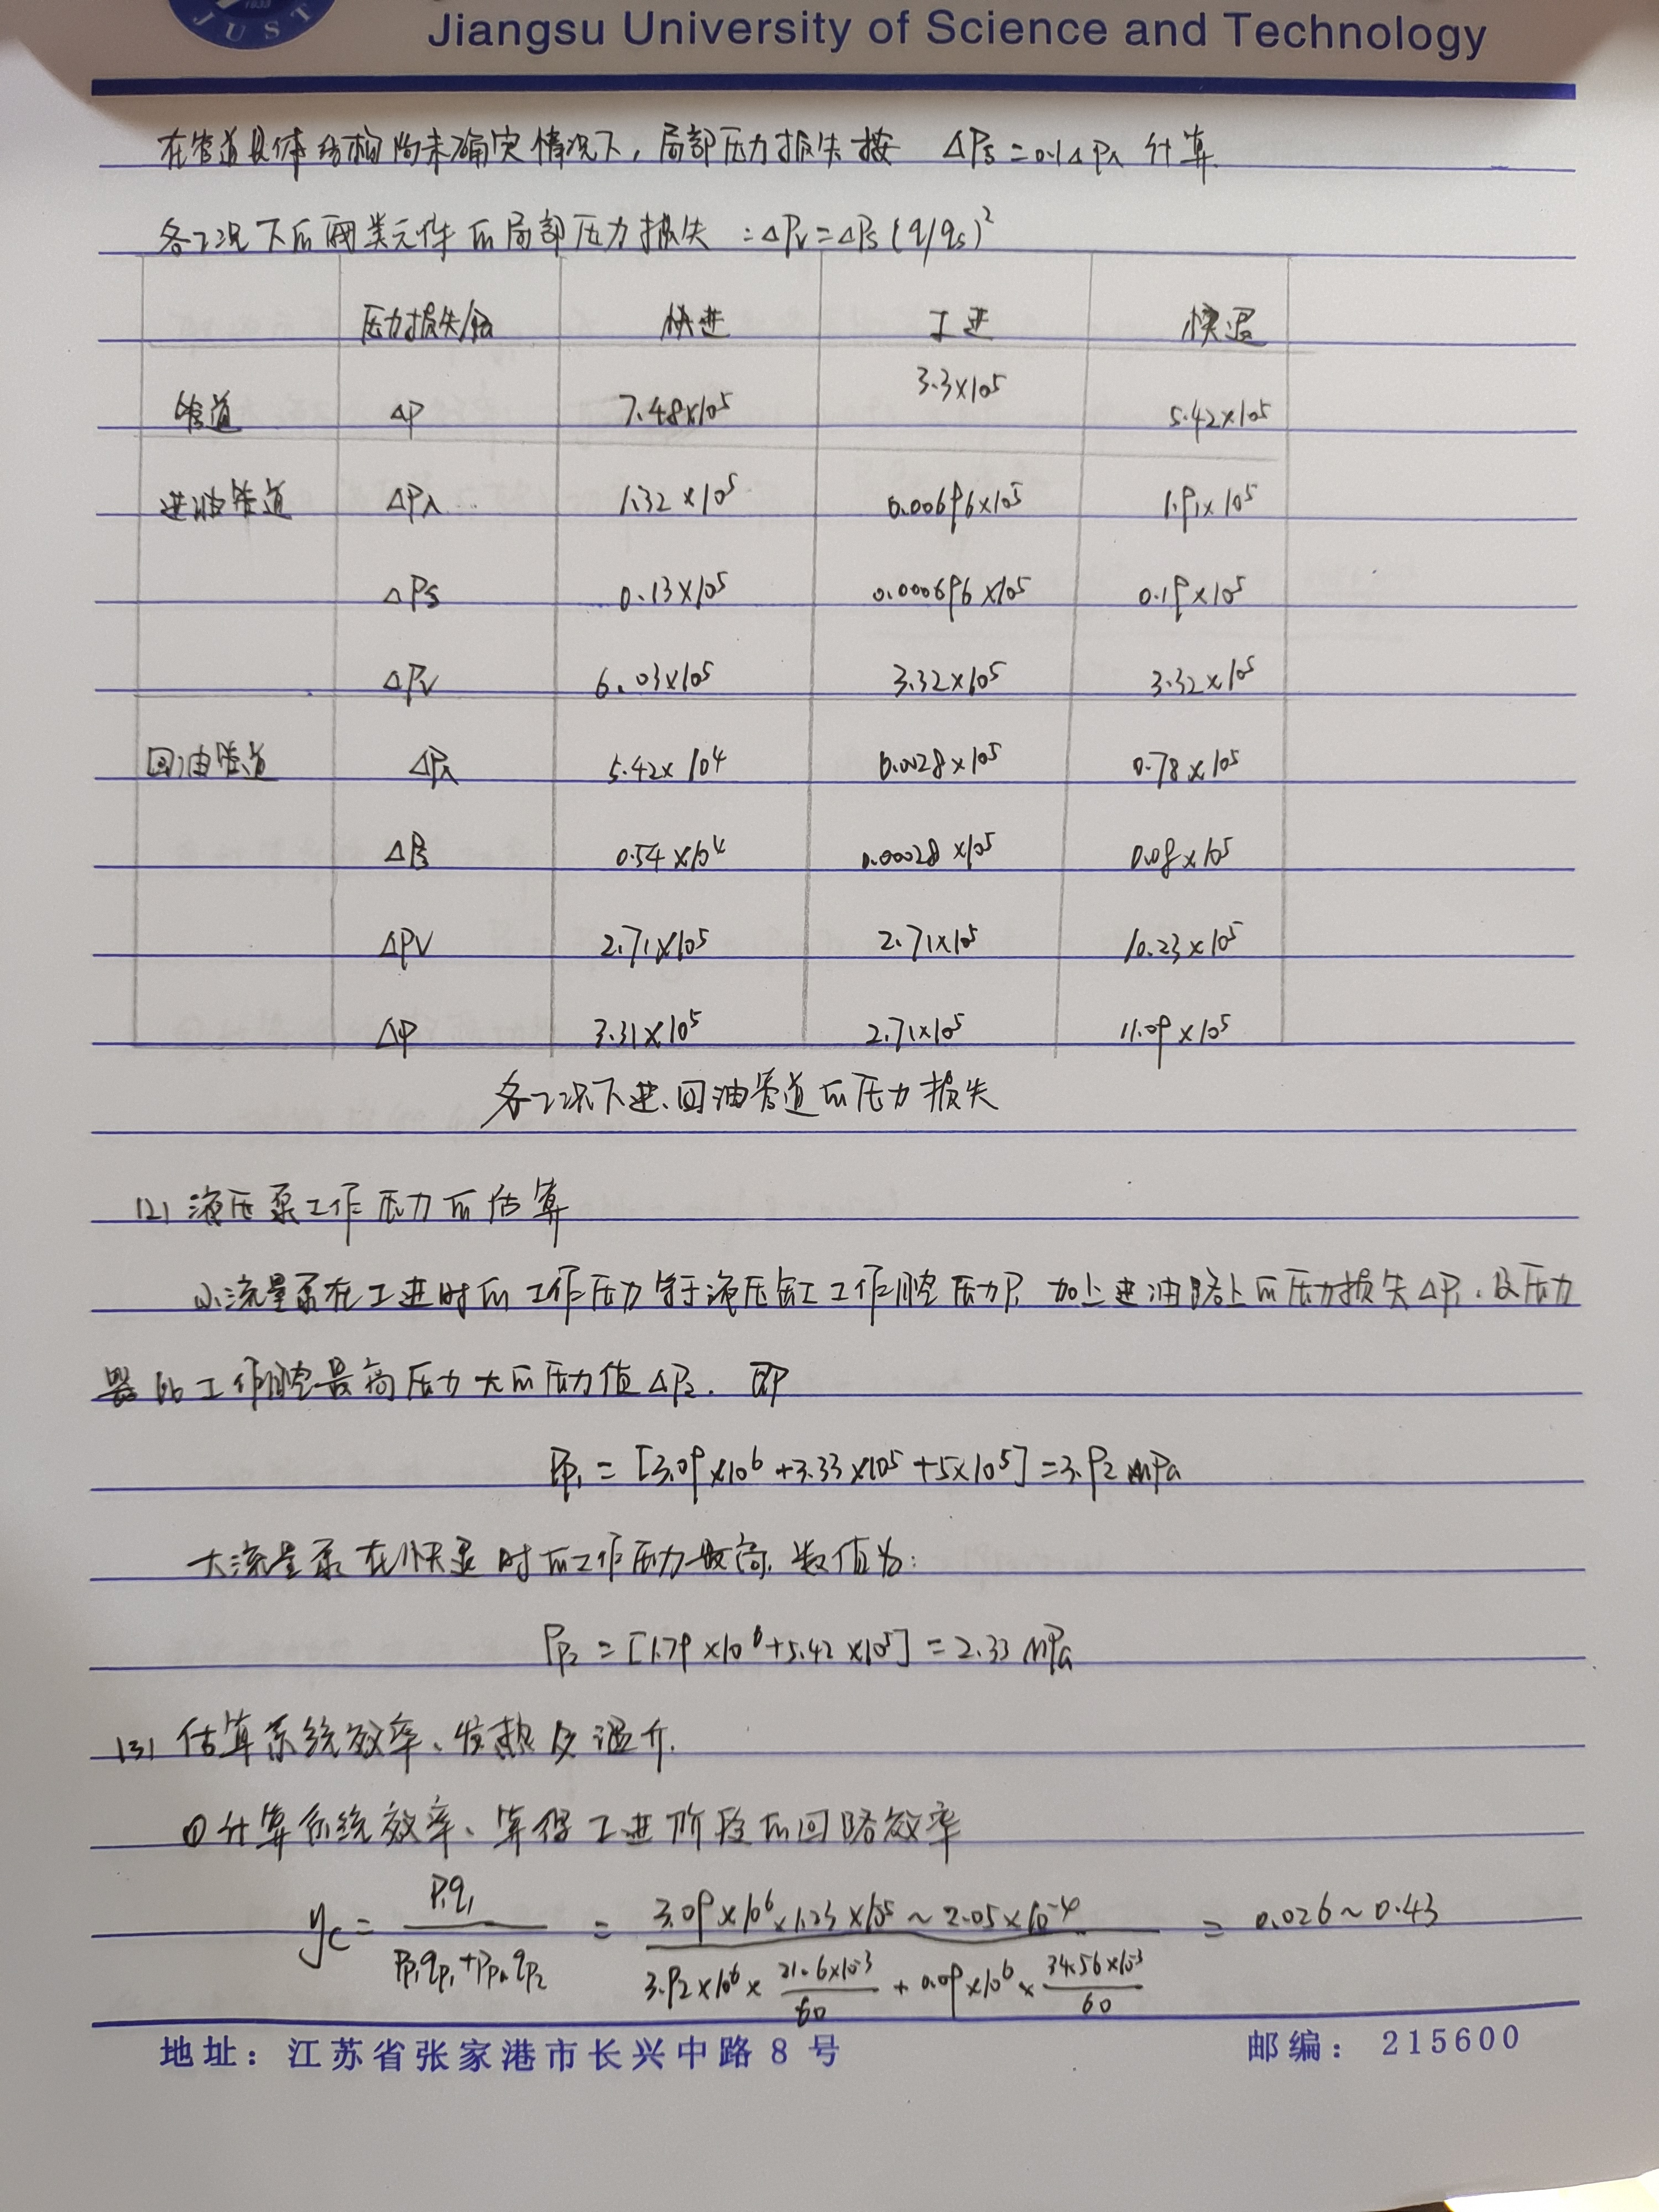 1933
JUST
Jiangsu University of Science and Technology
在管道具体结构尚未确定情况下，局部压力损失按 ΔPs=0.1ΔPλ 计算.
各工况下的阀类元件的局部压力损失：ΔPv=ΔPs(q/qs)²
压力损失/Pa 快进 工进 快退
管道 ΔP 7.48×10⁵ 3.3×10⁵ 5.42×10⁵
进油管道 ΔPλ 1.32×10⁵ 0.00696×10⁵ 1.91×10⁵
ΔPs 0.13×10⁵ 0.000696×10⁵ 0.19×10⁵
ΔPv 6.03×10⁵ 3.32×10⁵ 3.32×10⁵
回油管道 ΔPλ 5.42×10⁴ 0.0028×10⁵ 0.78×10⁵
ΔPs 0.54×10⁴ 0.00028×10⁵ 0.08×10⁵
ΔPV 2.71×10⁵ 2.71×10⁵ 10.23×10⁵
ΔP 3.31×10⁵ 2.71×10⁵ 11.09×10⁵
各工况下进、回油管道的压力损失
(2) 液压泵工作压力的估算
小流量泵在工进时的工作压力等于液压缸工作腔压力P₁ 加上进油路上的压力损失ΔP₁.及压力
器的工作腔最高压力大的压力值ΔP₂. 即
Pp₁=[3.09×10⁶+3.33×10⁵+5×10⁵]=3.92 MPa
大流量泵在快退时的工作压力最高,数值为:
Pp₂=[1.79×10⁶+5.42×10⁵]=2.33 MPa
(3) 估算系统效率、发热及温升.
①计算系统效率、算得工进阶段的回路效率
ηc = P₁q₁ / (Pp₁qp₁+Pp₂qp₂) = (3.09×10⁶×1.23×10⁵~2.05×10⁻⁴) / (3.92×10⁶×21.6×10⁻³/60 + 0.09×10⁶×34.56×10⁻³/60) = 0.026~0.43
地址：江苏省张家港市长兴中路8号 邮编：215600